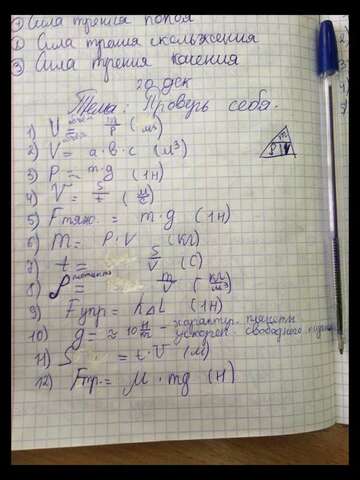 ① Сила трения покоя
② Сила трения скольжения
③ Сила трения качения
20 дек
Тема: Проверь себя.
1) V = m/ρ (м³)
2) V = a·b·c (м³)
3) P = m·g (1Н)
4) V = S/t (м/с)
5) Fтяж. = m·g (1Н)
6) m = ρ·V (кг)
7) t = S/V (с)
8) ρ = m/V (кг/м³)
9) Fупр = k∆L (1Н)
10) g = ≈ 10 Н/ - характер. планеты
ускорен. свободного
11) S = t·V (м)
12) Fтр. = μ·mg (Н)
m
ρ V